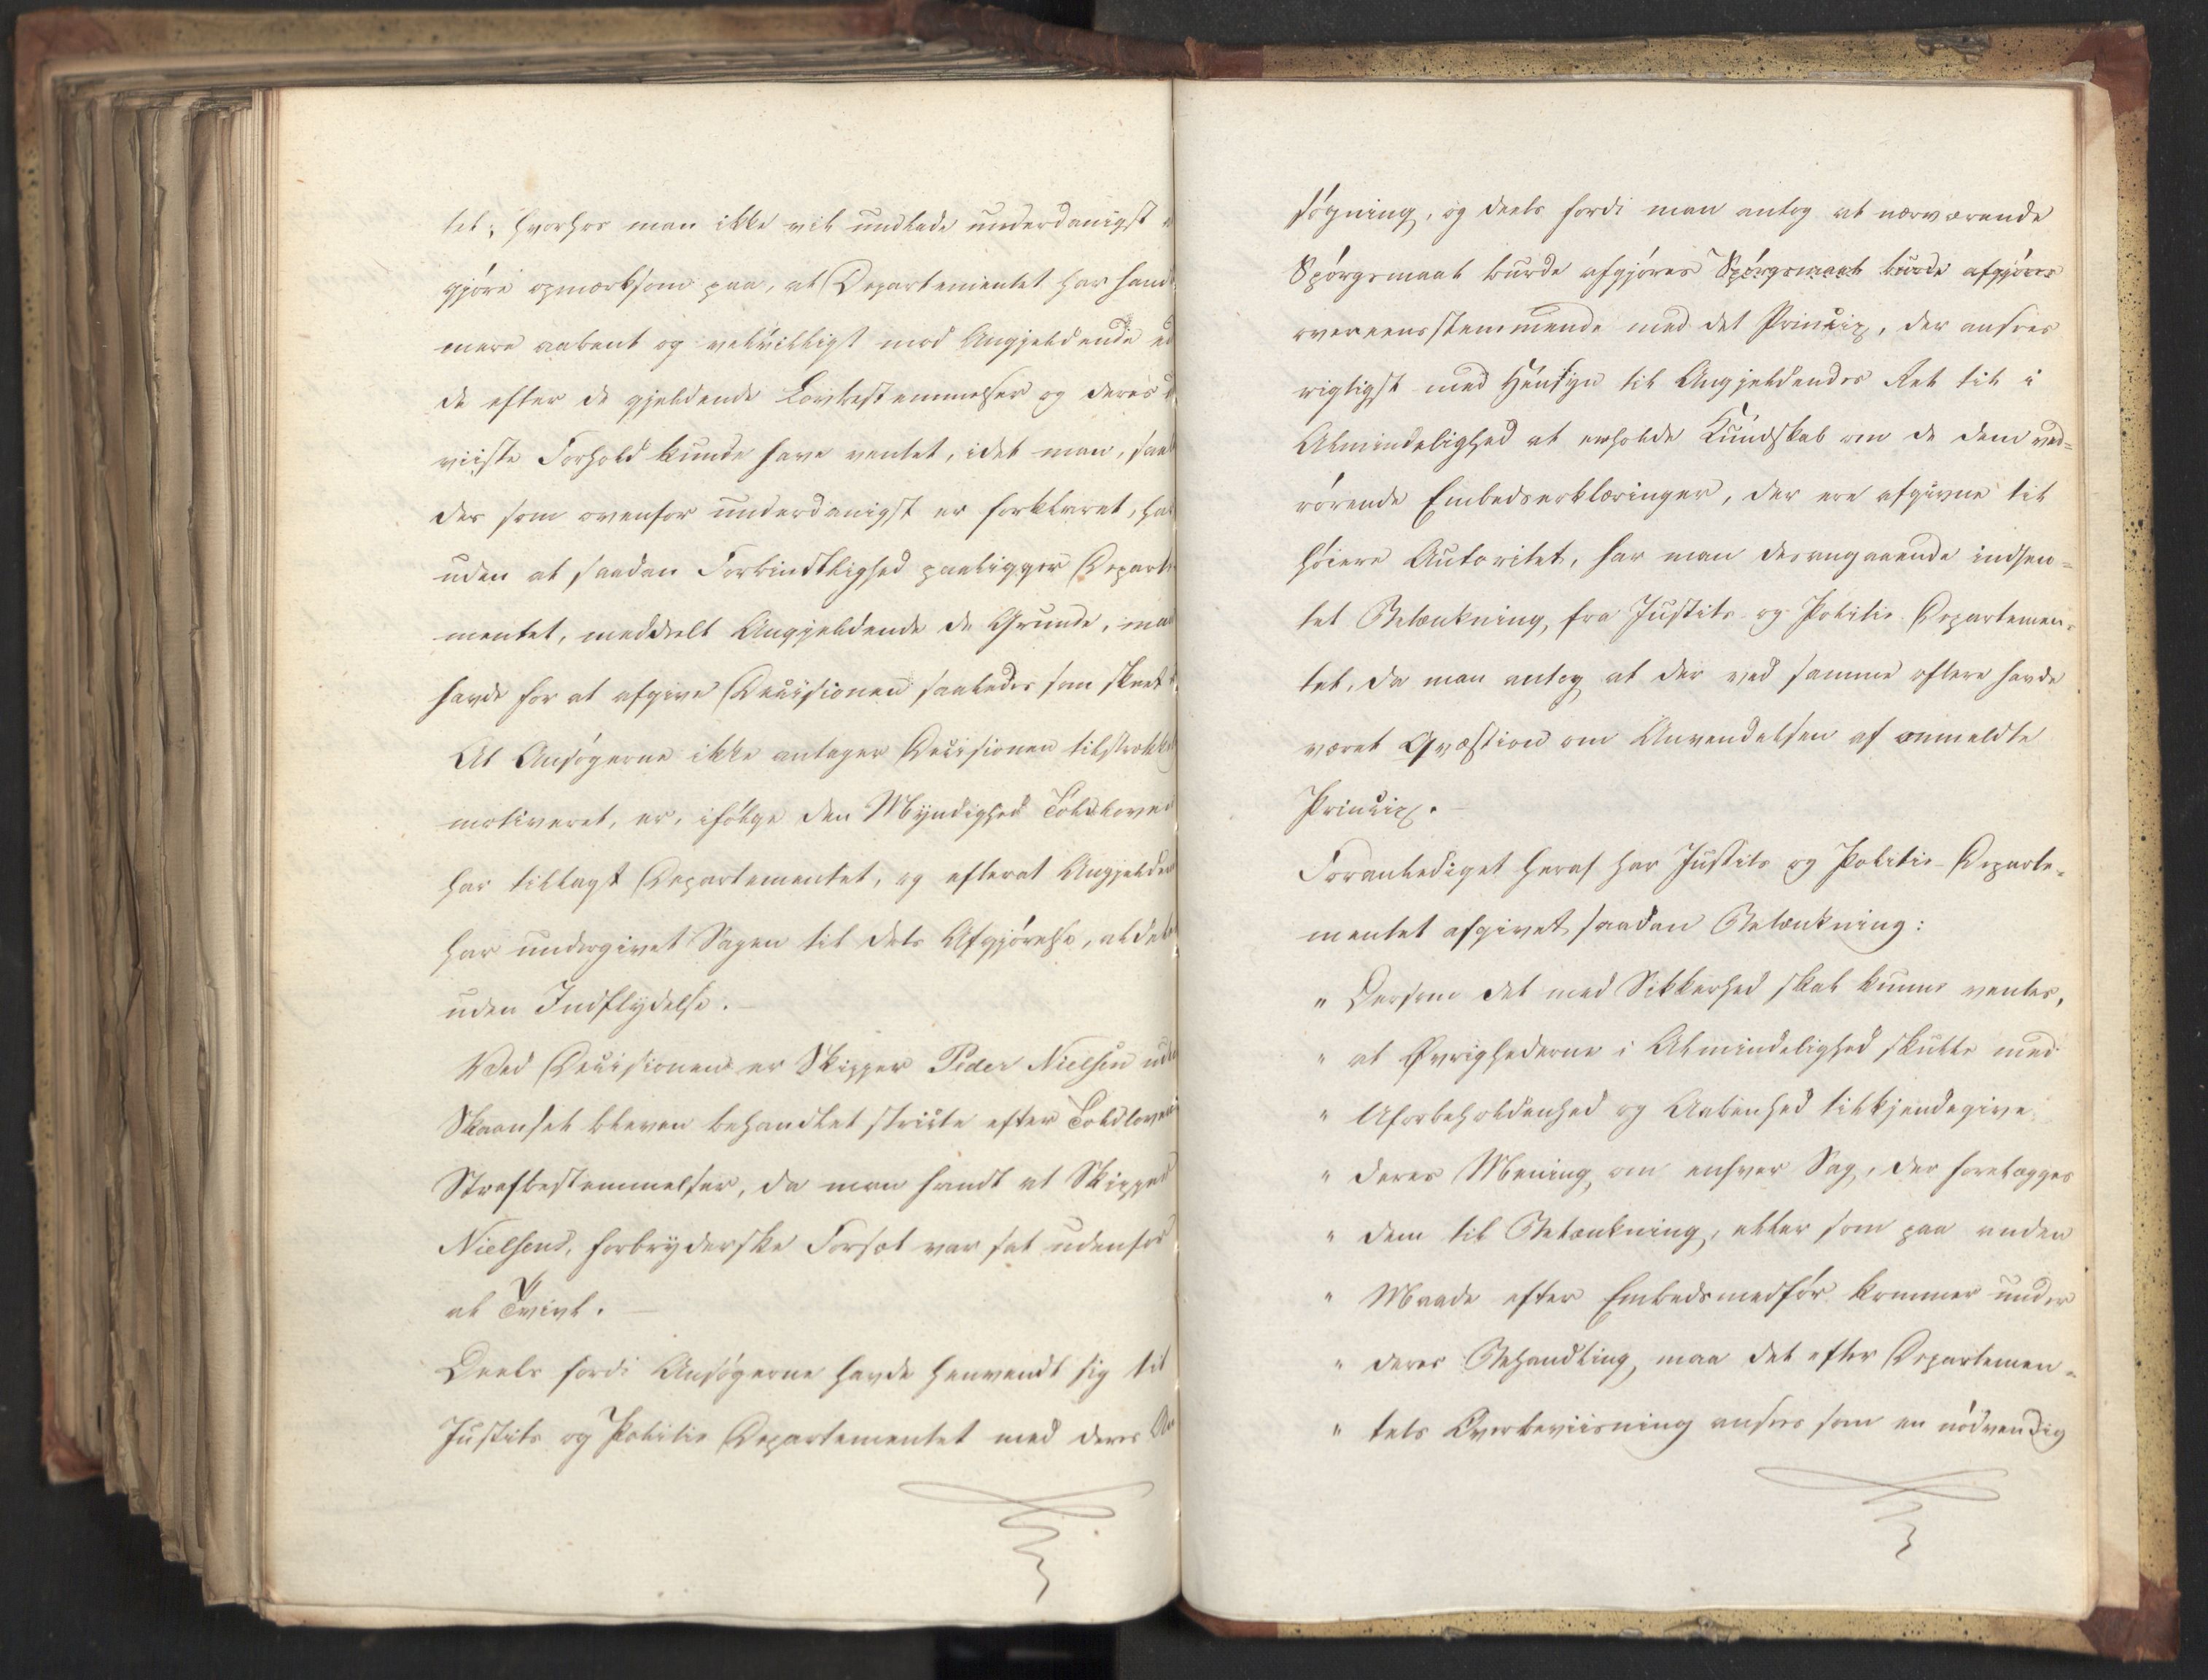 tet; hvorhos man ikke vil undlade underdanigst
gjøre opmærksom paa, at Departementet har hand
mere aabent og velvilligt mod Angjeldende
de efter de gjeldende Lovbestemmelser og deres
viiste Forhold kunde have ventet, idet man, saa
des som ovenfor underdanigst er forklaret, ha
uden at saadan Forbindtlighed paaligger Departe
mentet, meddeelt Angjeldende de Grunde, ma
havde for at afgive Decisionen saaledes som skeet
At Ansøgerne ikke antager Decisionen tilstrækk
motiveret, er, ifølge den Myndighed Toldloven
har tillagt Departementet, og efterat Angjelden
har undergivet Sagen til dets Afgjørelse, aldel
uden Indflydelse. —
Ved Decisionen er Skipper Peder Nielsen
Skaansel bleven behandlet stricte efter Toldloven
Strafbestemmelser, da man fandt at Skipper
Nielsens, forbryderske Forsæt var sat udenfor
al Tvivl. —
Deels fordi Ansøgerne havde henvendt sig til
Justits og Politie Departementet med deres An
søgning, og deels fordi man antog at nærværende
Spørgsmaal burde afgjøres Spørgsmaal burde afgjøres
overeensstemmende med det Princip, der ansees
rigtigst med Hensyn til Angjeldendes Ret til i
Almindelighed at erholde Kundskab om de dem ved=
rørende Embedserklæringer, der ere afgivne til
høiere Autoritet, har man desangaaende indhen=
tet Betænkning, fra Justits- og Politie Departemen=
tet, da man antog at der ved samme oftere havde
været Qvæstion om Anvendelsen af anmeldte
Princip. —
Foranlediget heraf har Justits og Politie-Departe=
mentet afgivet saadan Betænkning:
" Dersom det med Sikkerhed skal kunne ventes,
" at Øvrighederne i Almindelighed skulle med
" Uforbeholdenhed og Aabenhed tilkjendegive
" deres Mening om enhver Sag, der forelægges
" dem til Betænkning, eller som paa anden
" Maade efter Embedsmedfør kommer under
" deres Behandling, maa det efter Departemen=
" tets Overbeviisning ansees som en nødvendig